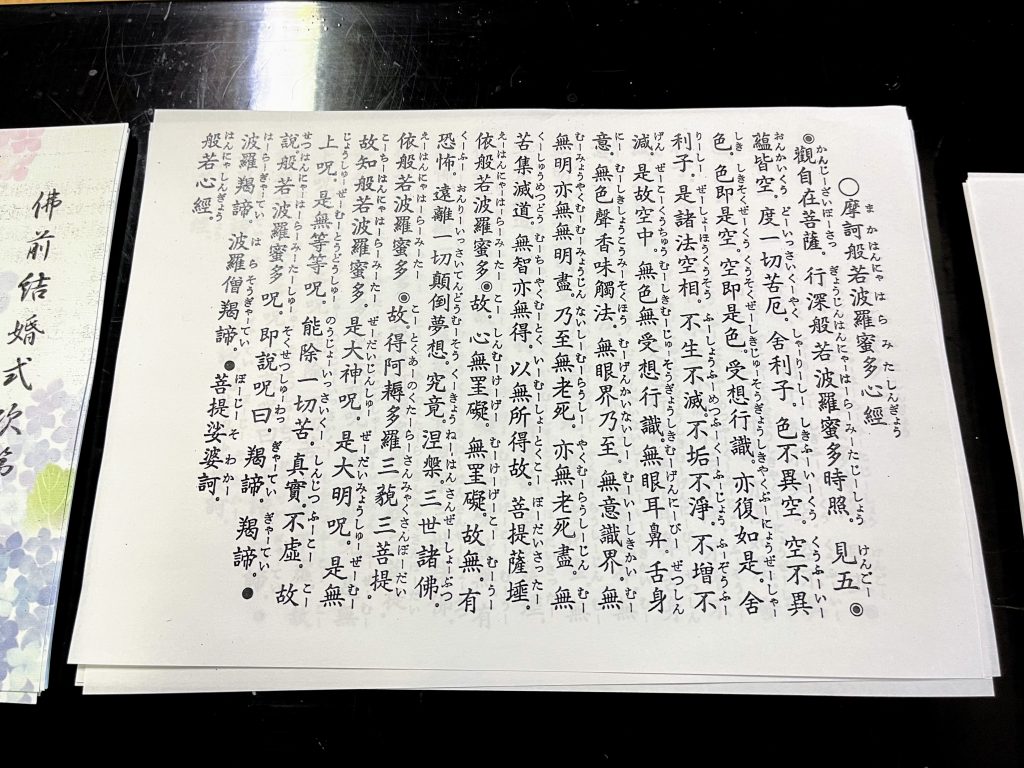 まかはんにゃはらみたしんぎょう
〇摩訶般若波羅蜜多心經
かんじーざいぼーさつ ぎょうじんはんにゃーはーらーみーたーじーしょう けんごー
◉觀自在菩薩。行深般若波羅蜜多時照。見五◉
おんかいくう どーいっさいくーやく しゃーりーしー しきふーいーくう くうふーいー
蘊皆空。度一切苦厄。舍利子。色不異空。空不異
しき しきそくぜーくう くうそくぜーしき じゅーそうぎょうしき やくぶーにょうぜーしゃー
色。色即是空。空即是色。受想行識。亦復如是。舍
りーしー ぜーしょーほうくうそう ふーしょうふーめつ ふーくーふーじょう ふーぞうふー
利子。是諸法空相。不生不滅。不垢不淨。不增不
げん ぜーこーくうちゅう むーしきむーじゅーそうぎょうしき むーげんにーびー ぜつしん
減。是故空中。無色無受想行識。無眼耳鼻。舌身
にー むーしきしょうこうみーそくほう むーげんかいないしー むーいーしきかい むー
意。無色聲香味觸法。無眼界乃至。無意識界。無
むーみょうやくむーむーみょうじん ないしーむーろうしー やくむーろうしーじん むー
無明亦無無明盡。乃至無老死。亦無老死盡。無
くーしゅうめつどう むーちーやくむーとく いーむーしょーとくこー ぼーだいさったー
苦集滅道。無智亦無得。以無所得故。菩提薩埵。
えーはんにゃーはーらーみーたー こー しんむーけーげー むーけーげー こー むーうー
依般若波羅蜜多◉故。心無罣礙。無罣礙。故無。有
くーふー おんりーいっさいてんどうむーそう くーきょう ねーはん さんぜーしょーぶつ
恐怖。遠離一切顛倒夢想。究竟。涅槃。三世諸佛。
えーはんにゃーはーらーみーたー こーとくあーのくたーらーさんみゃくさんぼーだい
依般若波羅蜜多◉故。得阿耨多羅三藐三菩提。
こーちーはんにゃーはーらーみーたー ぜーだいじんしゅー ぜーだいみょうしゅー ぜーむー
故知般若波羅蜜多。是大神呪。是大明呪。是無
じょうしゅー ぜーむーとうどうしゅー のうじょーいっさいくー しんじつ ふーこー こー
上呪。是無等等呪。能除一切苦。真實。不虛。故
せつ はんにゃーはーらーみーたーしゅー そくせつしゅーわつ ぎゃーてい ぎゃーてい
說。般若波羅蜜多呪。即說呪曰。羯諦。羯諦。●
はーらーぎゃーてい はらそうぎゃーてい ぼーじーそわかー
波羅羯諦。波羅僧羯諦。●菩提娑婆訶。
はんにゃしんぎょう
般若心經
佛前結婚式次第